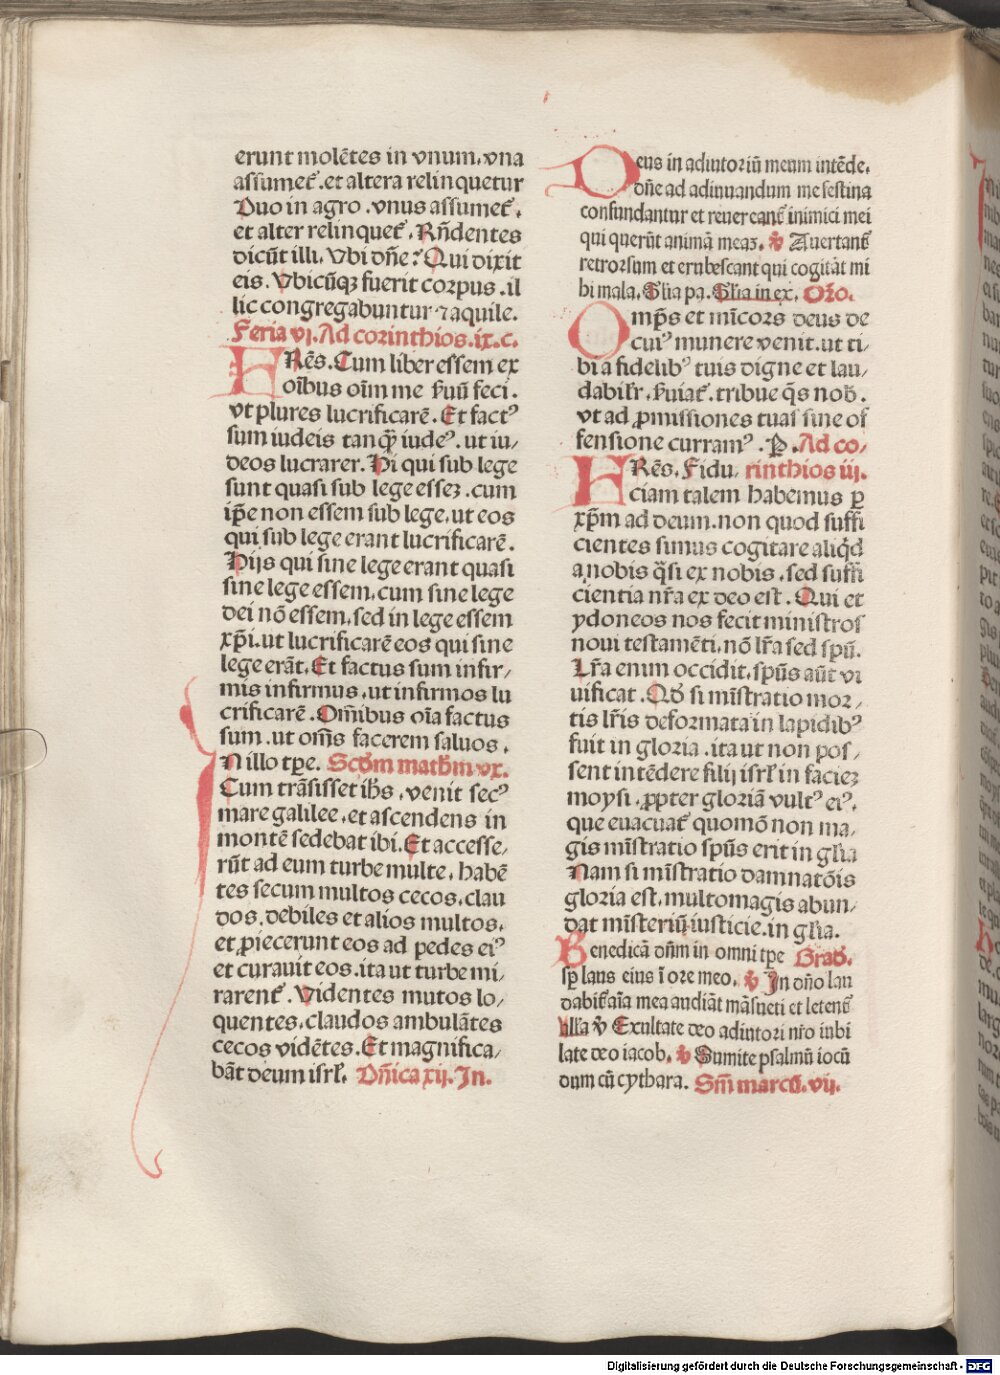 erunt molētes in vnum. vna
assumet᷑. et altera relinquetur
Duo in agro. vnus assumet᷑.
et alter relinquet᷑. Rñdentes
dicūt illi. Vbi dñe? Qui dixit
eis. Vbicūqꝫ fuerit corpus. il
lic congregabuntur ⁊ aquile.
Feria vj. Ad corinthios. ix. c.
FRēs. Cum liber essem ex
oībus oīm me ẜuū feci.
vt plures lucrificarē. Et factꝰ
sum iudeis tanqȝ iudeꝰ. ut iu/
deos lucrarer. Hi qui sub lege
sunt quasi sub lege esseꝫ. cum
ip̄e non essem sub lege. ut eos
qui sub lege erant lucrificarē.
Hijs qui sine lege erant quasi
sine lege essem. cum sine lege
dei nō essem. sed in lege essem
xp̄i. ut lucrificarē eos qui sine
lege erāt. Et factus sum infir/
mis infirmus. ut infirmos lu
crificarē. Om̄ibus oīa factus
sum. ut om̄s facerem saluos.
IN illo tp̄e. Scd̄m math̄m xv.
Cum trāsisset ih̄s. venit secꝰ
mare galilee. et ascendens in
montē sedebat ibi. Et accesse/
rūt ad eum turbe multe. habē
tes secum multos cecos. clau
dos. debiles et alios multos.
et ꝓiecerunt eos ad pedes eiꝰ
et curauit eos. ita ut turbe mi/
rarent᷑. Videntes mutos lo/
quentes. claudos ambulātes
cecos vidētes. Et magnifica/
bāt deum isrl̄. Dñica xij. In.
DEus in adiutoriū meum intēde.
dñe ad adiuuandum me festina
confundantur et reuereant᷑ inimici mei
qui querūt animā meaꝫ. ℣ Auertant᷑
retrorsum et erubescant qui cogitāt mi
bi mala. Glia pa. Glia in ex. Oro.
OMp̄s et mīcors deus de
cuiꝰ munere venit. ut ti/
bi a fidelibꝰ tuis digne et lau/
dabilr̄. ẜuiat᷑. tribue qs̄ nob̄.
vt ad ꝓmissiones tuas sine of
fensione curramꝰ. P̄. Ad co/
FRēs. Fidu/ rinthios iij.
ciam talem habemus ꝑ
xp̄m ad deum. non quod suffi
cientes simus cogitare aliqd̄
a nobis qs̄i ex nobis. sed suffi
cientia nr̄a ex deo est. Qui et
ydoneos nos fecit ministros
noui testamēti. nō lr̄a sed spū.
Lr̄a enim occidit. sp̄us aūt vi
uificat. Qd̄ si mīstratio mor/
tis lr̄is deformata in lapidibꝰ
fuit in gloria. ita ut non pos/
sent intēdere filij isrl̄ in facieꝫ
moysi. ꝓpter gloriā vultꝰ eiꝰ.
que euacuat᷑ quomō non ma/
gis mīstratio sp̄us erit in glīa
Nam si mīstratio damnatōis
gloria est. multomagis abun/
dat mīsteriū iusticie. in glīa.
Benedicā dñm in omni tp̄e Grad̄.
sp̄ laus eius ī ore meo. ℣ In dño lau
dabit᷑ aīa mea audiāt māsueti et letent᷑
Allīa ℣ Exultate deo adiutori nr̄o iubi
late deo iacob. ℣ Sumite psalmū iocū
dum cū cythara. Sm̄ marcū. vij.
Digitalisierung gefördert durch die Deutsche Forschungsgemeinschaft - DFG